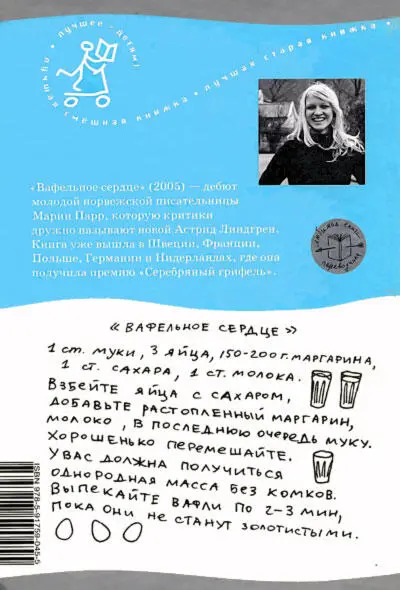 • лучшее - детям! •
смешная книжка • лучшая старая книжка •
«Вафельное сердце» (2005) — дебют
молодой норвежской писательницы
Марии Парр, которую критики
дружно называют новой Астрид Линдгрен.
Книга уже вышла в Швеции, Франции,
Польше, Германии и Нидерландах, где она
получила премию «Серебряный грифель».
« ВАФЕЛЬНОЕ СЕРДЦЕ »
1 СТ. МУКИ, 3 ЯЙЦА, 150-200 Г. МАРГАРИНА,
1 СТ. САХАРА, 1 СТ. МОЛОКА.
ВЗБЕЙТЕ ЯЙЦА С САХАРОМ,
ДОБАВЬТЕ РАСТОПЛЕННЫЙ МАРГАРИН,
МОЛОКО, В ПОСЛЕДНЮЮ ОЧЕРЕДЬ МУКУ.
ХОРОШЕНЬКО ПЕРЕМЕШАЙТЕ.
У ВАС ДОЛЖНА ПОЛУЧИТЬСЯ
ОДНОРОДНАЯ МАССА БЕЗ КОМКОВ.
ВЫПЕКАЙТЕ ВАФЛИ ПО 2-3 МИН,
ПОКА ОНИ НЕ СТАНУТ ЗОЛОТИСТЫМИ.
ISBN 978-5-91759-045-5